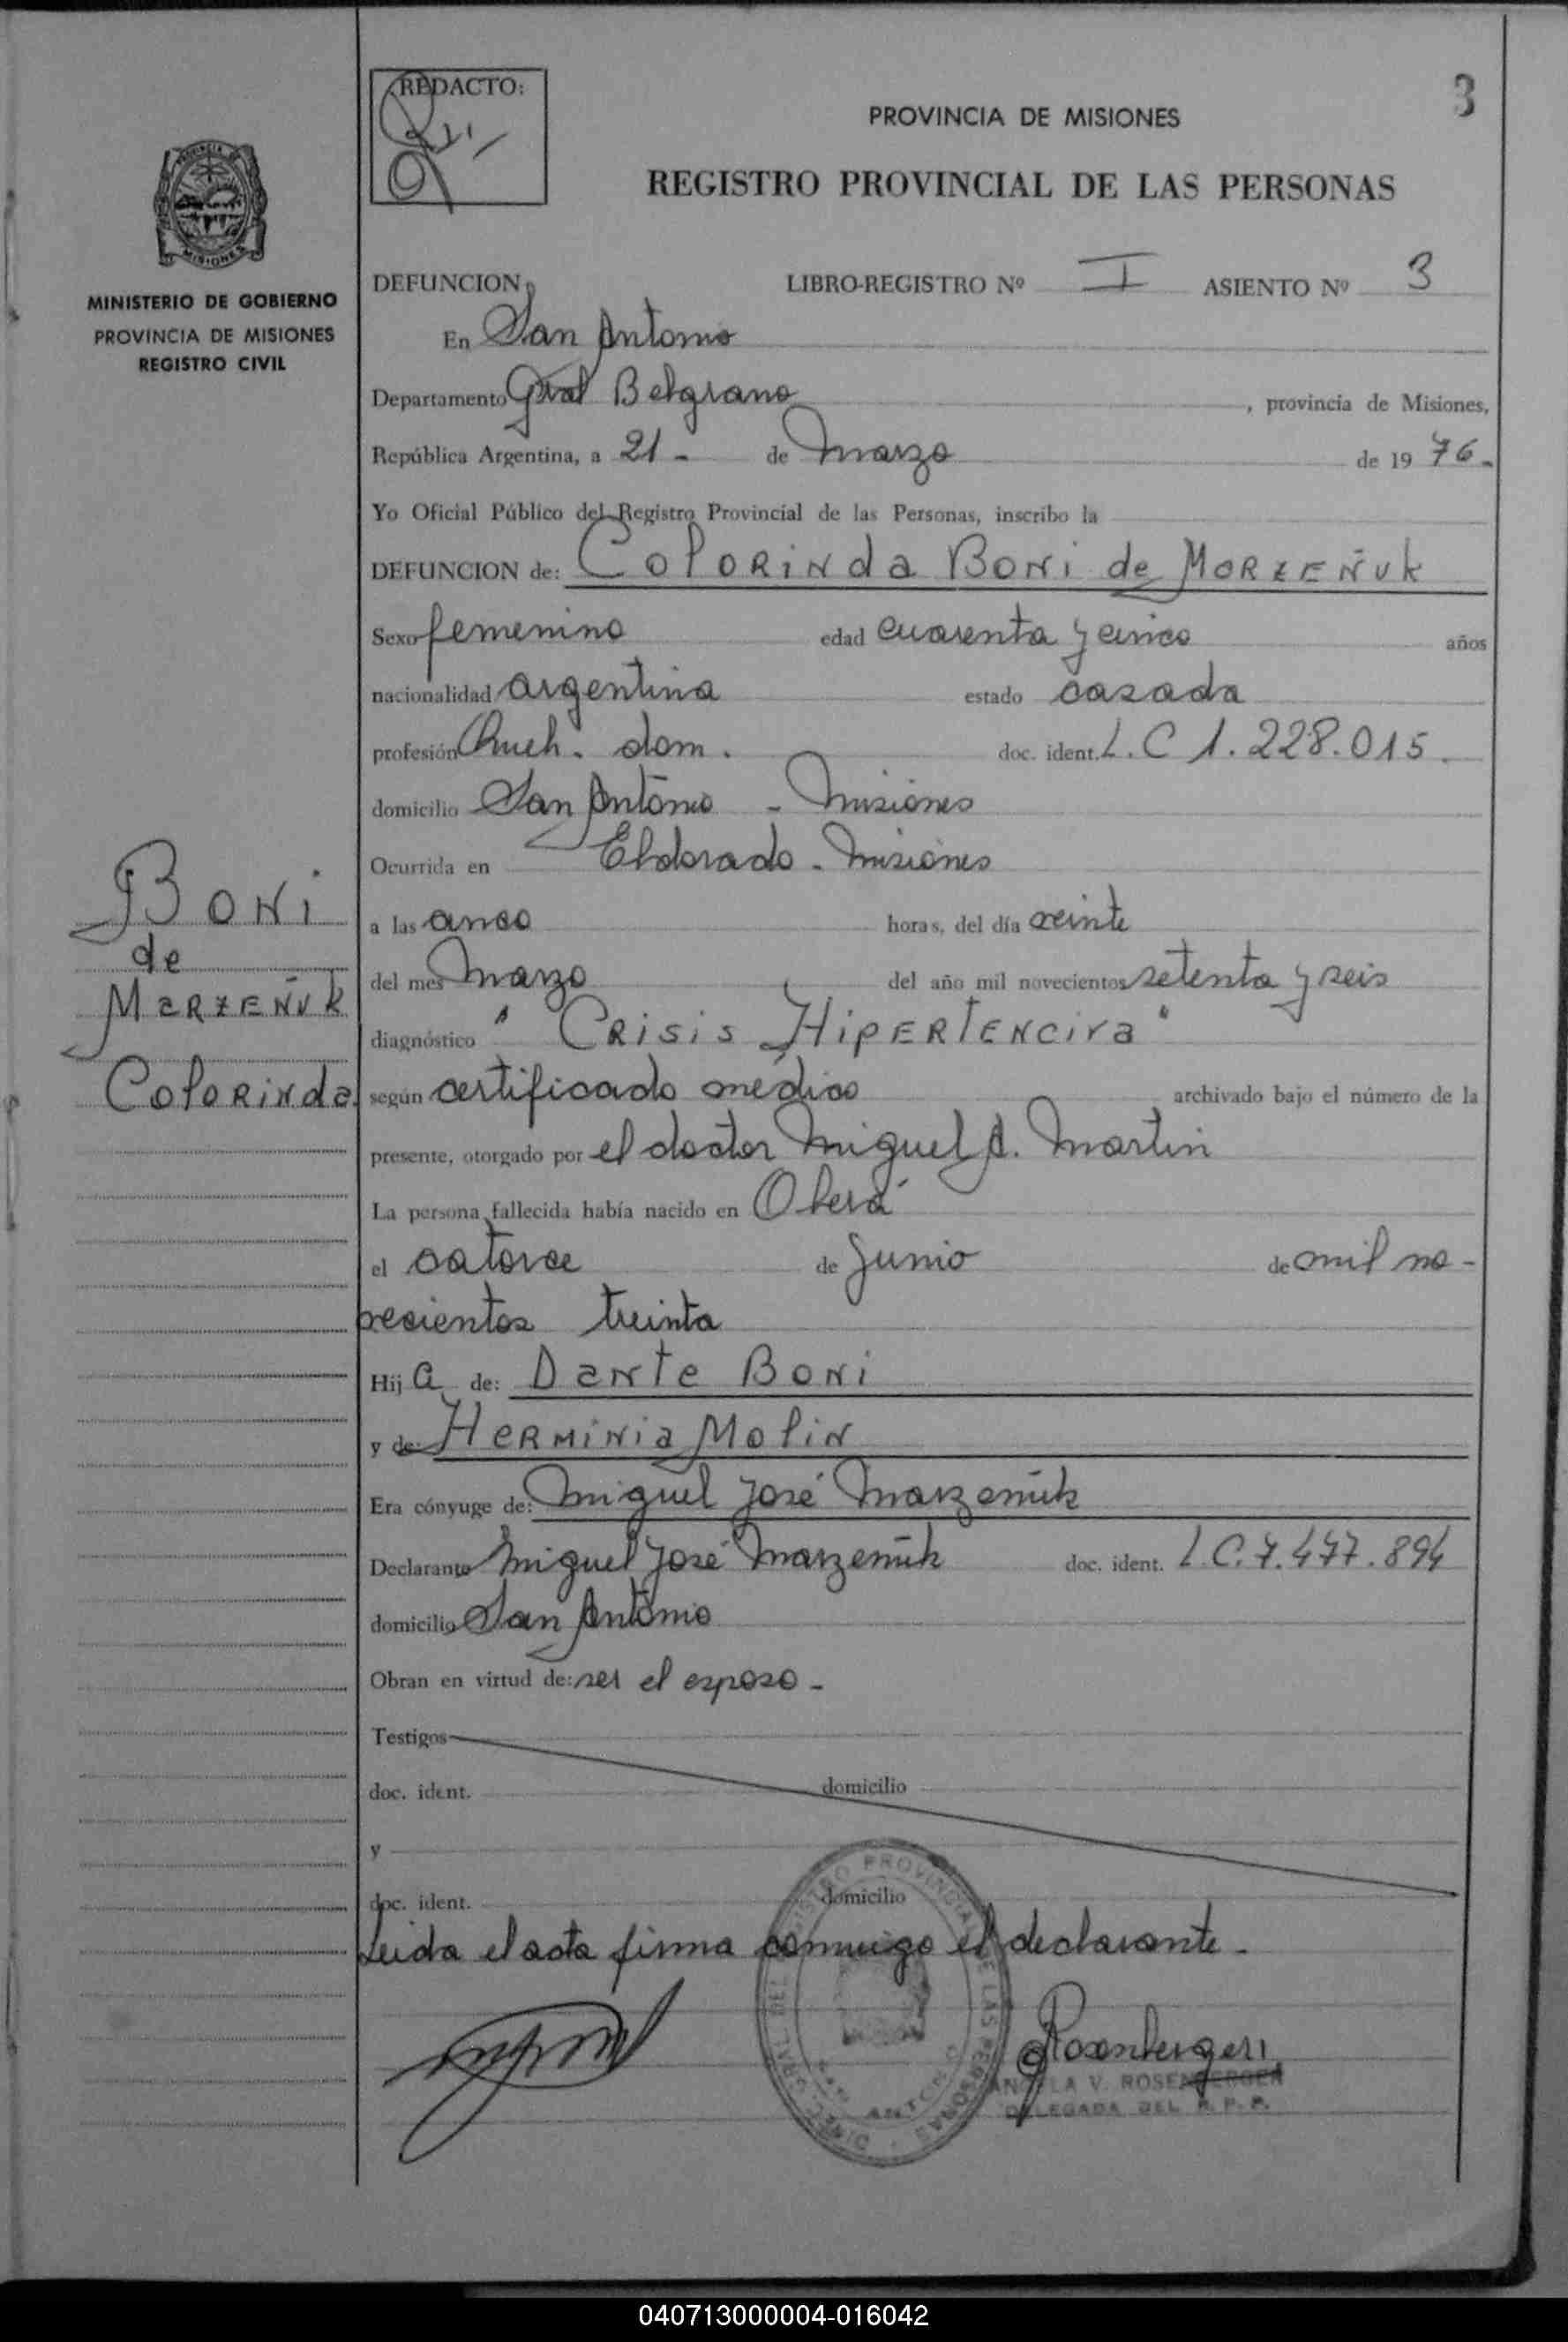 REDACTO:
3
PROVINCIA DE MISIONES
REGISTRO PROVINCIAL DE LAS PERSONAS
MISIONES
MINISTERIO DE GOBIERNO
PROVINCIA DE MISIONES
REGISTRO CIVIL
DEFUNCION LIBRO-REGISTRO Nº I ASIENTO Nº 3
En San Antonio
Departamento Gral Belgrano , provincia de Misiones,
República Argentina, a 21 - de Marzo de 19 76.-
Yo Oficial Público del Registro Provincial de las Personas, inscribo la
DEFUNCION de: Colorinda Boni de Marzeñuk
Sexo femenino edad cuarenta y cinco años
nacionalidad argentina estado casada
profesión Queh. dom. doc. ident. L.C 1.228.015.
domicilio San Antonio - Misiones
Ocurrida en Eldorado - Misiones
a las cinco horas, del día veinte
del mes Marzo del año mil novecientos setenta y seis
diagnóstico "Crisis Hipertenciva"
según certificado médico archivado bajo el número de la
presente, otorgado por el doctor Miguel A. Martin
La persona fallecida había nacido en Oberá
el catorce de Junio de mil no-
vecientos treinta
Hij a de: Dante Boni
y de: Herminia Molin
Era cónyuge de: Miguel José Marzeñuk
Declarante Miguel José Marzeñuk doc. ident. L.C.7.477.894
domicilio San Antonio
Obran en virtud de: ser el esposo -
Testigos
doc. ident. domicilio
y
doc. ident. domicilio
Leida el acta firma conmigo el declarante -
Boni
de
Marzeñuk
Colorinda
Rosenberger
ANGELA V. ROSENBERGER
DELEGADA DEL R. P. P.
040713000004-016042